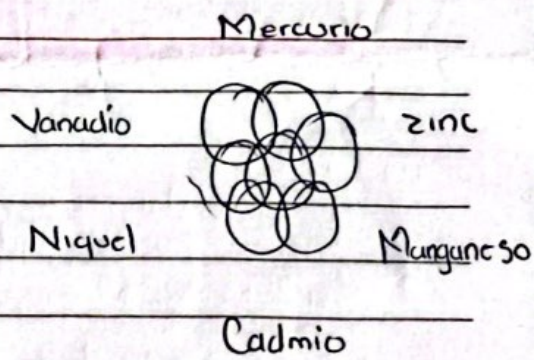 Mercurio
Vanadio zinc
Niquel Manganeso
Cadmio